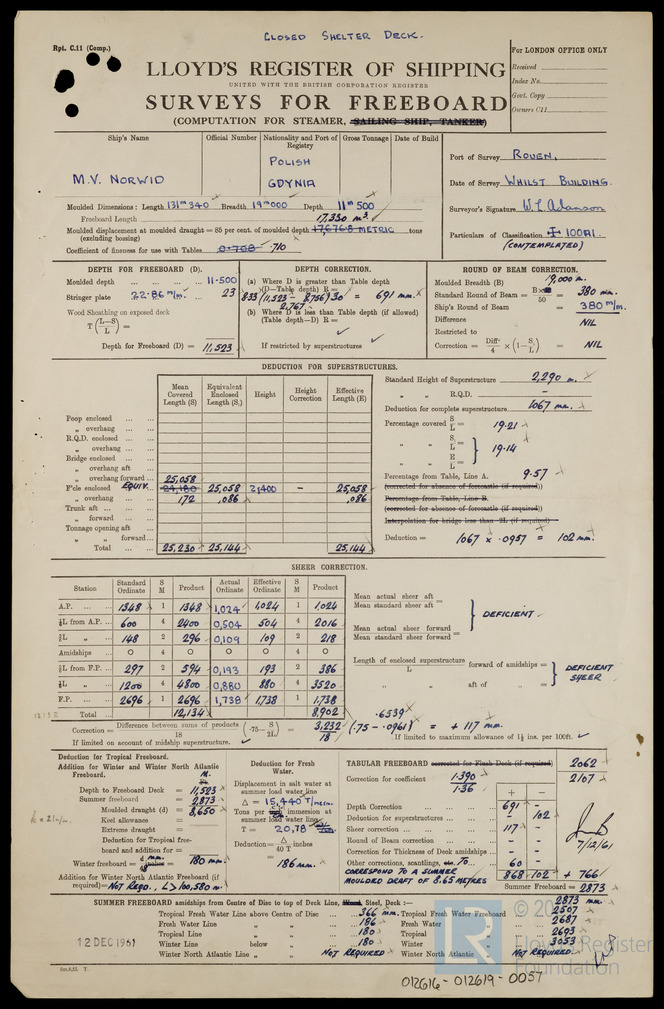 CLOSED SHELTER DECK.
Rpt. C.11 (Comp.)
For LONDON OFFICE ONLY
Received
Index No.
Govt. Copy
Owners C11
LLOYD'S REGISTER OF SHIPPING
UNITED WITH THE BRITISH CORPORATION REGISTER
SURVEYS FOR FREEBOARD
(COMPUTATION FOR STEAMER, SAILING SHIP, TANKER)
Ship's Name Official Number Nationality and Port of Registry Gross Tonnage Date of Build
M.V. NORWID POLISH GDYNIA
Port of Survey ROUEN.
Date of Survey WHILST BUILDING.
Surveyor's Signature W L Adamson
Particulars of Classification ✠ 100A1.
(CONTEMPLATED)
Moulded Dimensions: Length 131m 340 Breadth 19m000 Depth 11m 500
Freeboard Length
17,330 m3.
Moulded displacement at moulded draught = 85 per cent. of moulded depth 17,676.8 METRIC tons
(excluding bossing)
Coefficient of fineness for use with Tables 0.708 .710
DEPTH FOR FREEBOARD (D).
Moulded depth 11.500
Stringer plate 22.86 m/m. 23
Wood Sheathing on exposed deck
T (L—S / L) =
Depth for Freeboard (D) = 11,523
DEPTH CORRECTION.
(a) Where D is greater than Table depth
(D—Table depth) R =
833 (11,523 - 8,756) 30 = 691 mm.
2,767
(b) Where D is less than Table depth (if allowed)
(Table depth—D) R =
If restricted by superstructures
ROUND OF BEAM CORRECTION.
Moulded Breadth (B) 19,000 m.
Standard Round of Beam = B×12 / 50 = 380 mm.
Ship's Round of Beam = 380 m/m.
Difference NIL
Restricted to
Correction = Diffce / 4 × (1—S1 / L) = NIL
DEDUCTION FOR SUPERSTRUCTURES.
Mean Covered Length (S) Equivalent Enclosed Length (S1) Height Height Correction Effective Length (E)
Poop enclosed
„ overhang
R.Q.D. enclosed
„ overhang
Bridge enclosed
„ overhang aft
„ overhang forward
25,058
F'cle enclosed EQUIV. 24,180 25,058 2,400 – 25,058
„ overhang 172 ,086 ,086
Trunk aft
„ forward
Tonnage opening aft
„ „ forward
Total 25,230 25,144 25,144
Standard Height of Superstructure 2,290 m.
„ „ R.Q.D. –
Deduction for complete superstructure 1067 mm.
Percentage covered S / L = 19.21
„ „ S1 / L = 19.14
E / L =
Percentage from Table, Line A. 9.57
(corrected for absence of forecastle (if required))
Percentage from Table, Line B.
(corrected for absence of forecastle (if required))
Interpolation for bridge less than ·2L (if required)
Deduction = 1067 x .0957 = 102 mm.
SHEER CORRECTION.
Station Standard Ordinate S M Product Actual Ordinate Effective Ordinate S M Product
A.P. 1348 1 1348 1,024 1,024 1 1,024
⅙L from A.P. 600 4 2400 0,504 504 4 2016
⅓L „ 148 2 296 0,109 109 2 218
Amidships 0 4 0 0 0 4 0
⅓L from F.P. 297 2 594 0,193 193 2 386
⅙L „ 1200 4 4800 0,880 880 4 3520
F.P. 2696 1 2696 1,738 1,738 1 1,738
Total 12,134 8,902
Mean actual sheer aft
Mean standard sheer aft =
Mean actual sheer forward
Mean standard sheer forward =
DEFICIENT
Length of enclosed superstructure / L forward of amidships =
„ „ aft of „ =
DEFICIENT SHEER
Correction = Difference between sums of products / 18 (·75— S / 2L) = 3,232 / 18 (.75 - .0961) = + 117 mm.
.6539
If limited on account of midship superstructure.
If limited to maximum allowance of 1½ ins. per 100ft.
Deduction for Tropical Freeboard.
Addition for Winter and Winter North Atlantic Freeboard.
M.
Depth to Freeboard Deck = 11,523
Summer freeboard = 2,873
Moulded draught (d) = 8,650
Keel allowance =
Extreme draught =
Deduction for Tropical freeboard and addition for =
Winter freeboard = d mm. / 48 = 180 mm.
Addition for Winter North Atlantic Freeboard (if required) = NOT REQD. L > 100,580 m.
Deduction for Fresh Water.
Displacement in salt water at summer load water line
Δ = 15,440 T/
Tons per immersion at summer load water line
T = 20,78
Deduction = Δ / 40 T
= 186 mm.
TABULAR FREEBOARD corrected for Flush Deck (if required) 2062
Correction for coefficient 1.390 / 1.36 2107
+ –
Depth Correction 691 –
Deduction for superstructures – 102
Sheer correction 117 –
Round of Beam correction – –
Correction for Thickness of Deck amidships – –
Other corrections, scantlings, etc. TO. 60 –
CORRESPOND TO A SUMMER
MOULDED DRAFT OF 8.65 METRES
868 102 + 766
Summer Freeboard = 2873
7/12/61
SUMMER FREEBOARD amidships from Centre of Disc to top of Deck Line, Wood, Steel, Deck :— 2873 mm.
Tropical Fresh Water Line above Centre of Disc 366 mm. Tropical Fresh Water Freeboard 2507
Fresh Water Line „ „ 186 Fresh Water „ 2687
Tropical Line „ „ 180 Tropical „ 2693
Winter Line below „ 180 Winter „ 3053
Winter North Atlantic Line „ „ NOT REQUIRED Winter North Atlantic „ NOT REQUIRED
12 DEC 1961
LR
© 20
Lloyd's Register
Foundation
012616 - 012619 - 0057